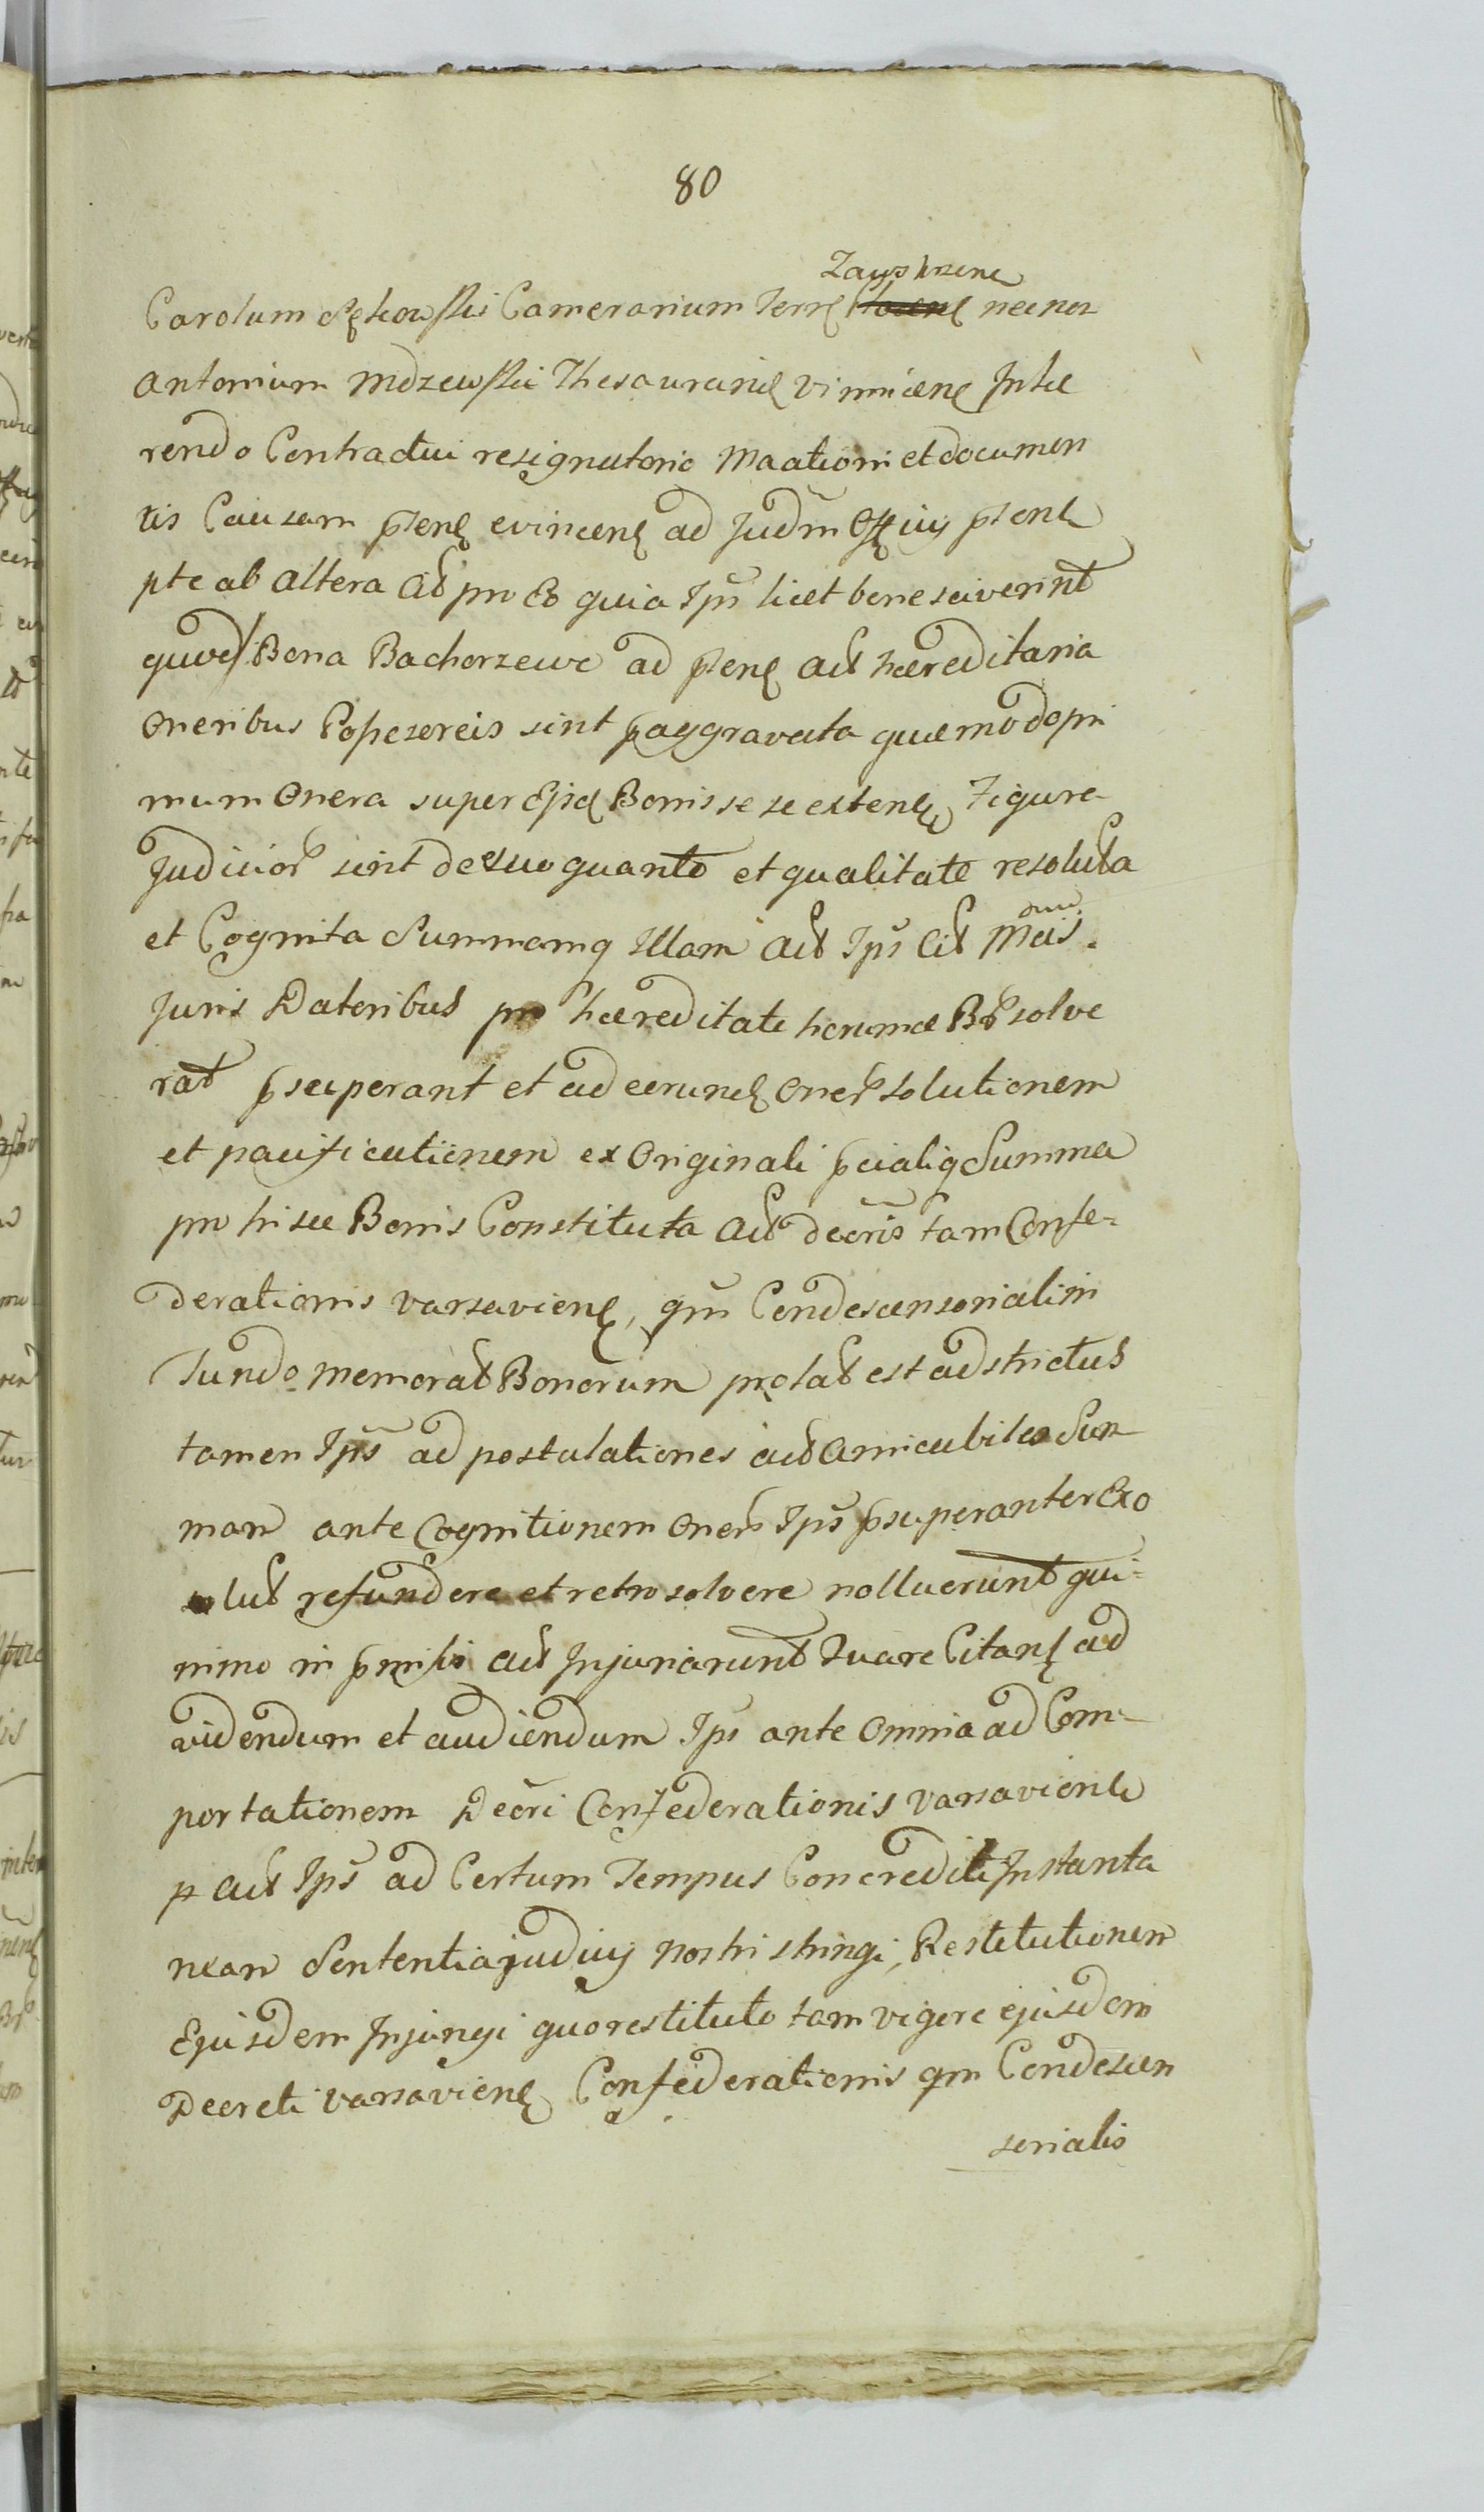 80
Zaws krzene
Carolum Sękowski Camerarium Terrę necnon
Antonium Mdzewski Thesaurariū Vinnicenę Inhæ
rendo Contractui resignatorio Maationi et documen
tis Causam ptenę evincenę ad Judm Offcij ptenł
pte ab altera Ad pro Eo quia Ipsi licet bene sciverint
quod Bona Bachorzewo ad ptenę Act hæreditaria
Oneribus Popczoreis sint paggravata quæ modo pri
mum Onera super Ejsd Bonis se se extenę, Figura
Judicior̃ sint de suo quanto et qualitate resoluta
et Cognita Summamq Illam Act Ipsi Cit Mcis.
Juris Datoribus pro hæreditate horumce Br̃ solve
rat psuperant et ad eorund oner̃ solutionem
et pacificationem ex Originali pcialiq Summa
pro hisce Bonis Constituta Act decris tam Confe-
derationis Varsavienę, qm Condescensoriali in
fundo memorat Bonorum prolat est adstrictus
tamen Ipsi ad postulationes Act Amicabiles Sum
mam ante Cognitionem Oner̃ Ipsis psuperanter Exo
lut refundere et retro solvere nolluerunt qui-
nimo in pmissis Act Injuriarunt Quare Citanę ad
videndum et audiendum Ipsi ante Omnia ad Com-
portationem Decri Confederationis Varsavienł
p Act Ipsis ad Certum Tempus Concrediti Instanta
neam Sententia judicij nostri stringi, Restitutionem
Ejusdem Injungi quo restituto tam vigore ejusdem
Decreti Varsavienę Confederationis qm Condescen
sorialis